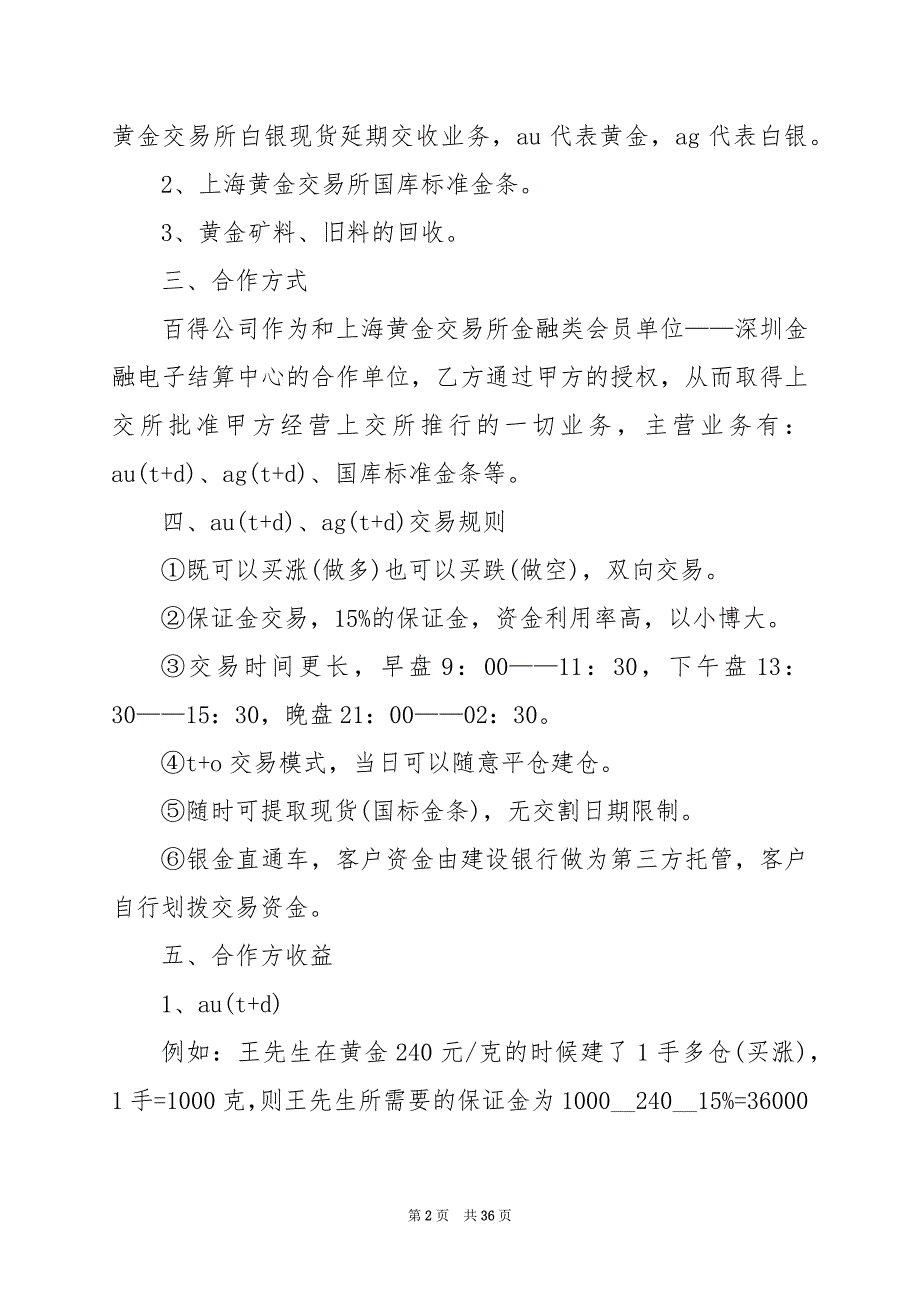 黄金交易所白银现货延期交收业务，au 代表黄金，ag 代表白银。
2、上海黄金交易所国库标准金条。
3、黄金矿料、旧料的回收。
三、合作方式
百得公司作为和上海黄金交易所金融类会员单位——深圳金
融电子结算中心的合作单位，乙方通过甲方的授权，从而取得上
交所批准甲方经营上交所推行的一切业务，主营业务有：
au(t+d)、ag(t+d)、国库标准金条等。
四、au(t+d)、ag(t+d)交易规则
①既可以买涨(做多)也可以买跌(做空)，双向交易。
②保证金交易，15%的保证金，资金利用率高，以小博大。
③交易时间更长，早盘 9：00——11：30，下午盘 13：
30——15：30，晚盘 21：00——02：30。
④t+o 交易模式，当日可以随意平仓建仓。
⑤随时可提取现货(国标金条)，无交割日期限制。
⑥银金直通车，客户资金由建设银行做为第三方托管，客户
自行划拨交易资金。
五、合作方收益
1、au(t+d)
例如：王先生在黄金 240 元/克的时候建了 1 手多仓(买涨)，
1 手=1000 克,则王先生所需要的保证金为 1000__240__15%=36000
第 2 页 共 36 页